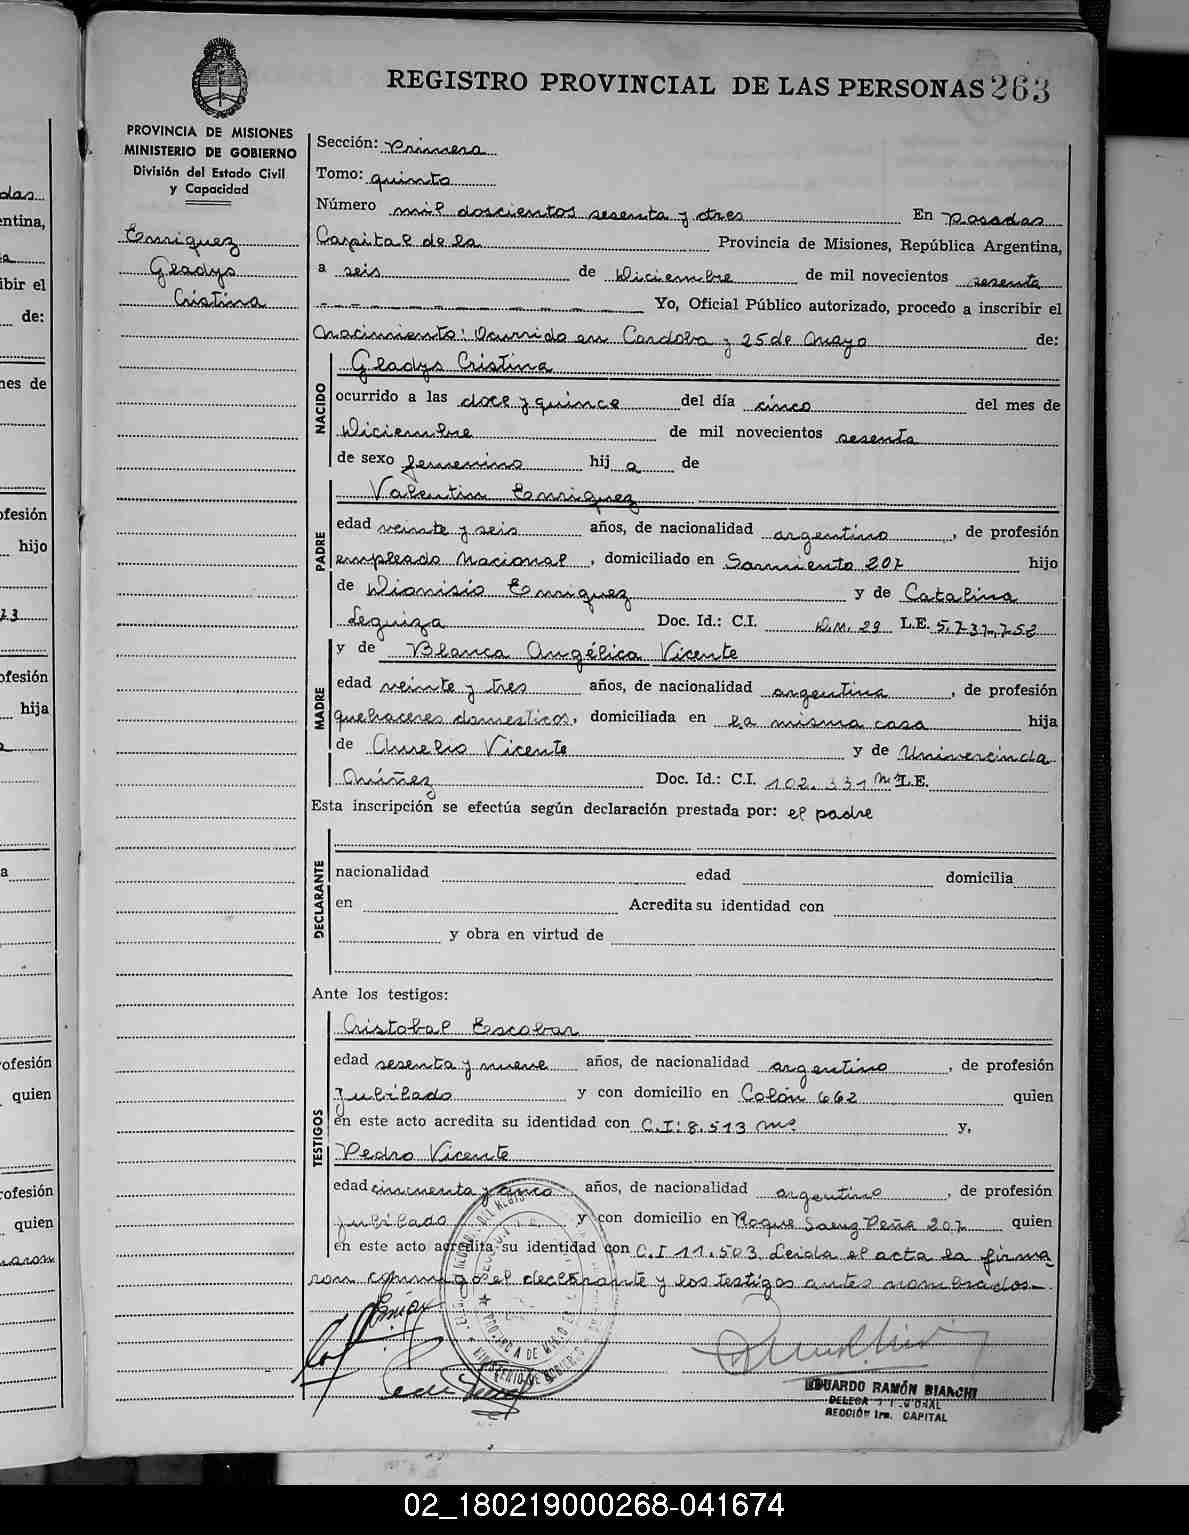 REGISTRO PROVINCIAL DE LAS PERSONAS 263
PROVINCIA DE MISIONES
MINISTERIO DE GOBIERNO
División del Estado Civil
y Capacidad
Enriquez
Gladys
Cristina
Sección: Primera
Tomo: quinto
Número mil doscientos sesenta y tres En Posadas
Capital de la Provincia de Misiones, República Argentina,
a seis de Diciembre de mil novecientos sesenta
Yo, Oficial Público autorizado, procedo a inscribir el
Nacimiento: Ocurrido en Cordoba y 25 de Mayo de:
NACIDO
Gladys Cristina
ocurrido a las doce y quince del día cinco del mes de
Diciembre de mil novecientos sesenta
de sexo femenino hij a de
PADRE
Valentin Enriquez
edad veinte y seis años, de nacionalidad argentino, de profesión
empleado Nacional, domiciliado en Sarmiento 207 hijo
de Dionisio Enriquez y de Catalina
Leguiza Doc. Id.: C.I. D.M. 29 L.E. 5.737.758
MADRE
y de Blanca Angélica Vicente
edad veinte y tres años, de nacionalidad argentina, de profesión
quehaceres domesticos, domiciliada en la misma casa hija
de Aurelio Vicente y de Univercinda
Núñez Doc. Id.: C.I. 102.331 Mnes L.E.
Esta inscripción se efectúa según declaración prestada por: el padre
DECLARANTE
nacionalidad edad domicilia
en Acredita su identidad con
y obra en virtud de
Ante los testigos:
TESTIGOS
Cristobal Escobar
edad sesenta y nueve años, de nacionalidad argentino, de profesión
Jubilado y con domicilio en Colón 662 quien
en este acto acredita su identidad con C.I: 8.513 Mnes y,
Pedro Vicente
edad cincuenta y cinco años, de nacionalidad argentino, de profesión
jubilado y con domicilio en Roque Saenz Peña 207 quien
en este acto acredita su identidad con C.I 11.503 Leida el acta la firma
ron conmigo el declarante y los testigos antes nombrados-
EDUARDO RAMÓN BIANCHI
SECCIÓN 1ra. CAPITAL
das
entina,
a
ibir el
de:
nes de
ofesión
hijo
ofesión
hija
a
ofesión
quien
ofesión
quien
maron
02_180219000268-041674